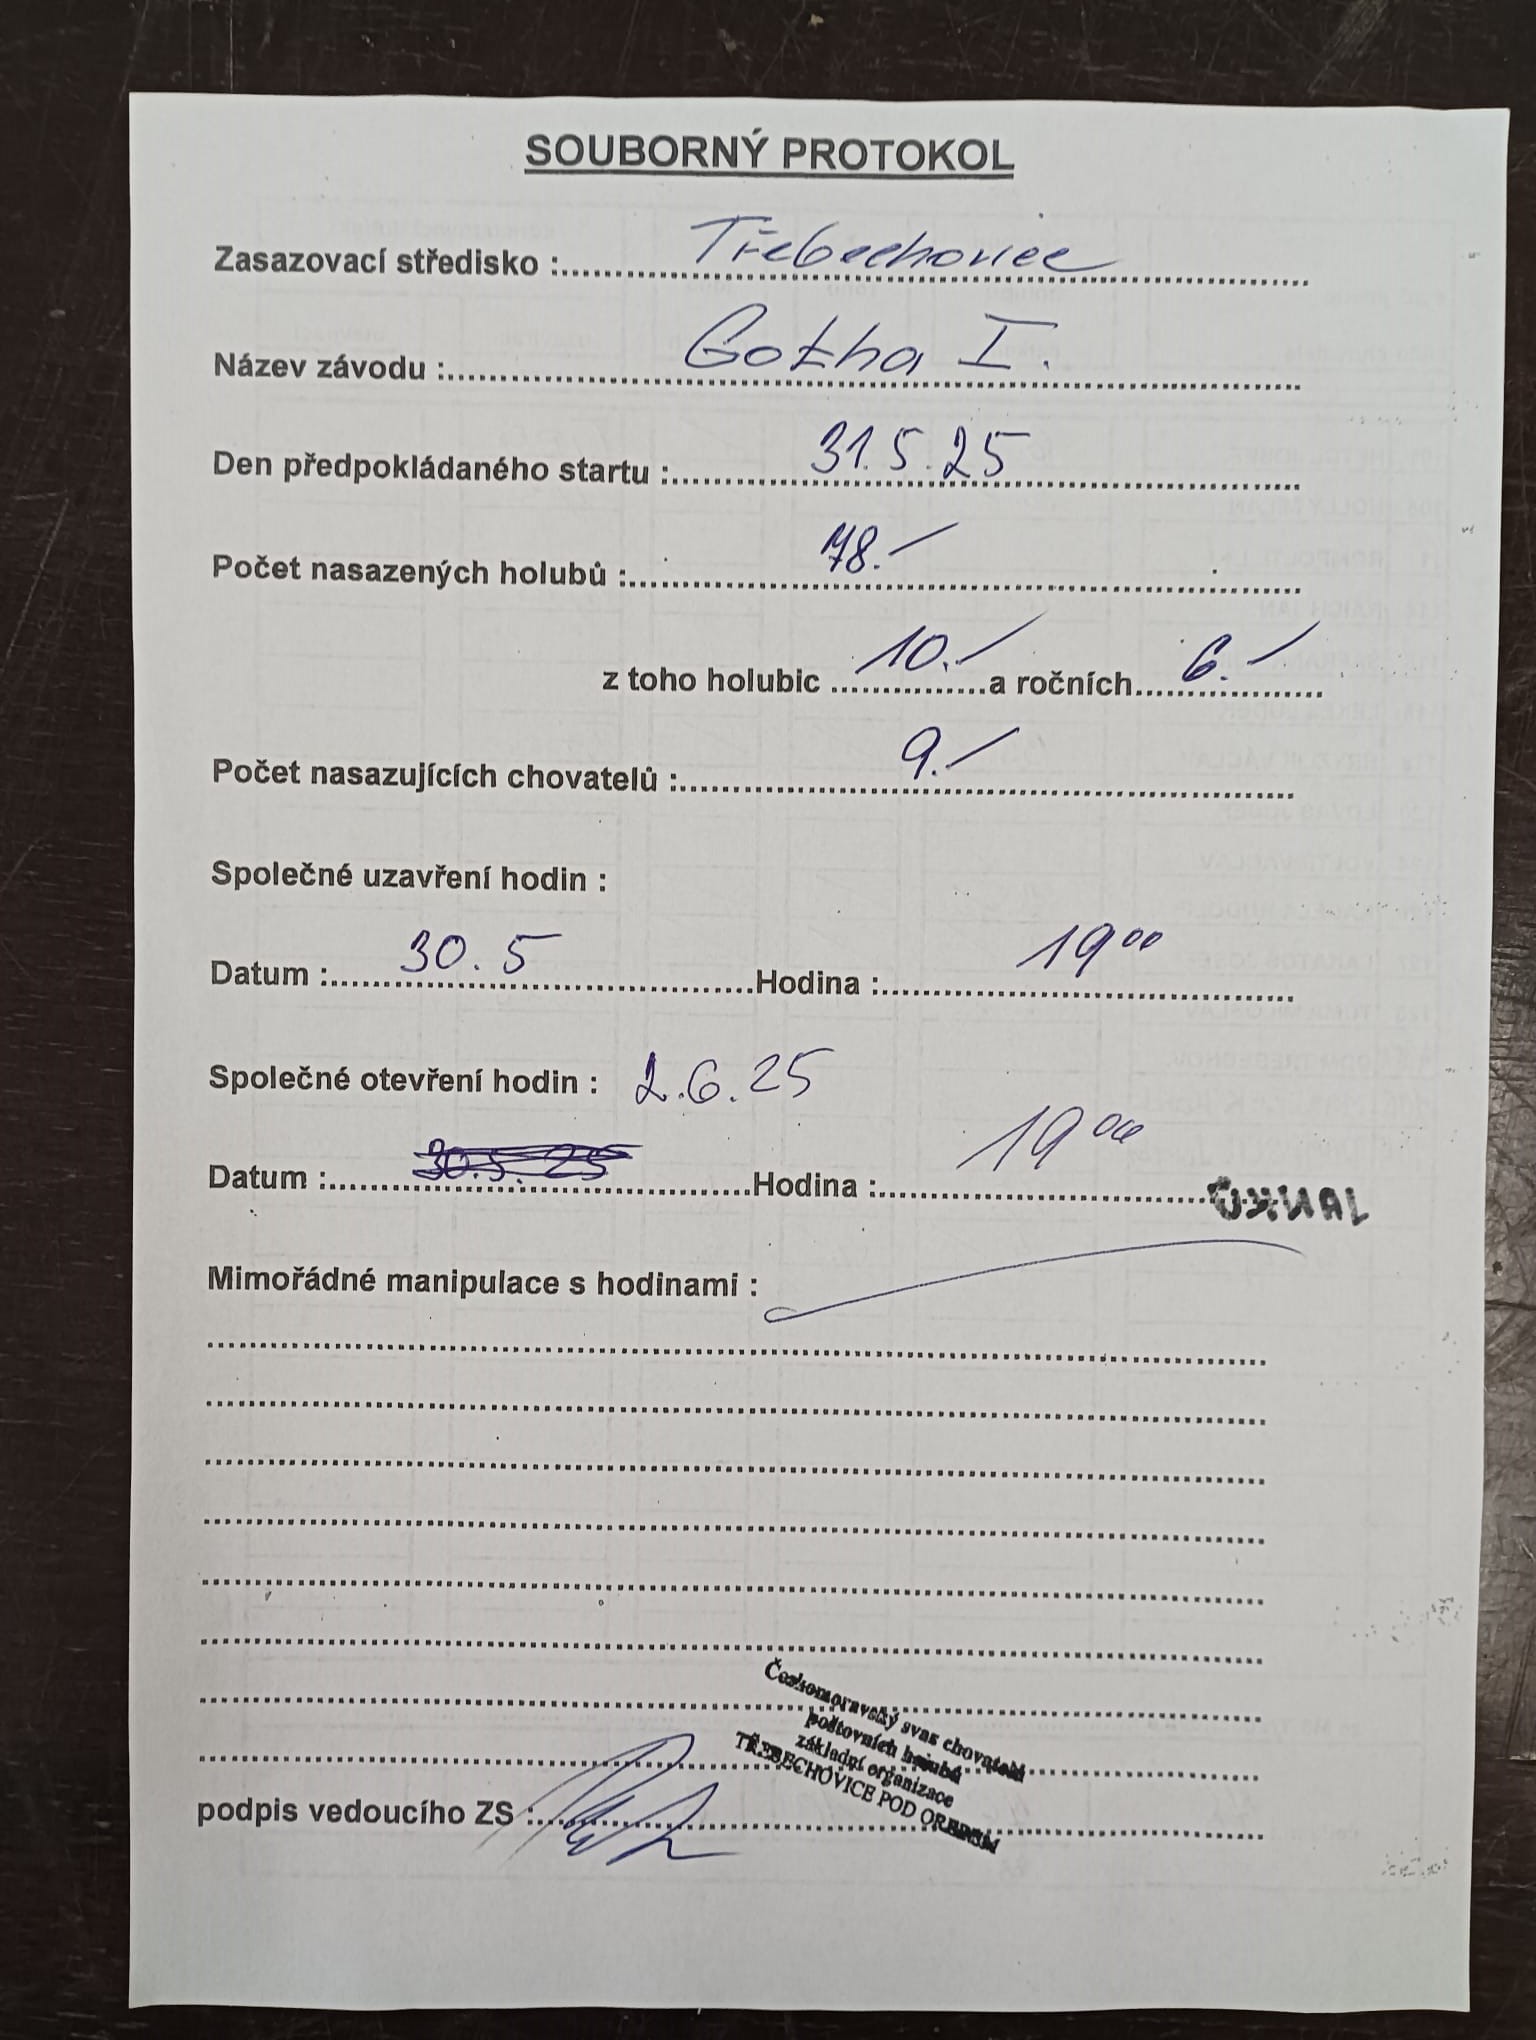 SOUBORNÝ PROTOKOL
Zasazovací středisko : Třebechovice
Název závodu : Gotha I.
Den předpokládaného startu : 31.5.25
Počet nasazených holubů : 78.-
z toho holubic 10.- a ročních 6.-
Počet nasazujících chovatelů : 9.-
Společné uzavření hodin :
Datum : 30.5 Hodina : 19 00
Společné otevření hodin : 2.6.25
Datum : 30.5.25 Hodina : 19 00
Mimořádné manipulace s hodinami :
Českomoravský svaz chovatelů
poštovních holubů
základní organizace
TŘEBECHOVICE POD OREBEM
podpis vedoucího ZS :